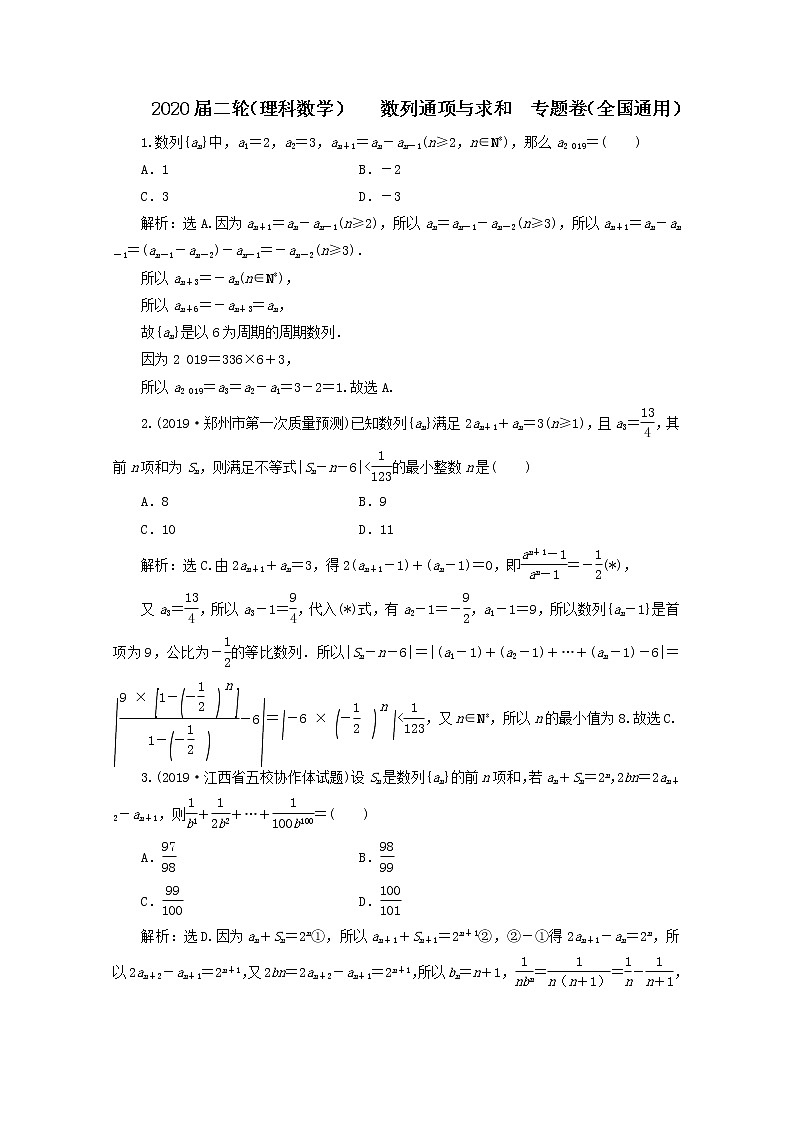 2020届二轮(理科数学)  数列通项与求和  专题卷(全国通用)
1.数列{aₙ}中, a₁=2, a₂=3, aₙ₊₁=aₙ-aₙ₋₁(n≥2, n∈N*), 那么 a₂ ₀₁₉=(  )
A. 1  B. -2
C. 3  D. -3
解析:选A.因为 aₙ₊₁=aₙ-aₙ₋₁(n≥2), 所以 aₙ=aₙ₋₁-aₙ₋₂(n≥3), 所以 aₙ₊₁=aₙ-aₙ
₋₁=(aₙ₋₁-aₙ₋₂)-aₙ₋₁=-aₙ₋₂(n≥3).
所以 aₙ₊₃=-aₙ(n∈N*),
所以 aₙ₊₆=-aₙ₊₃=aₙ,
故{aₙ}是以6为周期的周期数列.
因为2 019=336×6+3,
所以 a₂ ₀₁₉=a₃=a₂-a₁=3-2=1.故选A.
2.(2019·郑州市第一次质量预测)已知数列{aₙ}满足 2aₙ₊₁+aₙ=3(n≥1), 且 a₃=13/4, 其
前 n 项和为 Sₙ, 则满足不等式|Sₙ-n-6|<1/123的最小整数 n 是(  )
A. 8  B. 9
C. 10  D. 11
解析:选C.由 2aₙ₊₁+aₙ=3, 得 2(aₙ₊₁-1)+(aₙ-1)=0, 即(aⁿ⁺¹-1)/(aⁿ-1)=-1/2(*),
又 a₃=13/4, 所以 a₃-1=9/4, 代入(*)式, 有 a₂-1=-9/2, a₁-1=9, 所以数列{aₙ-1}是首
项为9, 公比为-1/2的等比数列. 所以|Sₙ-n-6|=|(a₁-1)+(a₂-1)+…+(aₙ-1)-6|=
|9×[1-(-1/2)ⁿ]/(1-(-1/2))-6|=|-6×(-1/2)ⁿ|<1/123, 又 n∈N*, 所以 n 的最小值为8.故选C.
3.(2019·江西省五校协作体试题)设 Sₙ是数列{aₙ}的前 n 项和, 若 aₙ+Sₙ=2ⁿ, 2bn=2aₙ₊
₂-aₙ₊₁, 则1/b¹+1/2b²+…+1/100b¹⁰⁰=(  )
A. 97/98  B. 98/99
C. 99/100  D. 100/101
解析:选D.因为 aₙ+Sₙ=2ⁿ①, 所以 aₙ₊₁+Sₙ₊₁=2ⁿ⁺¹②, ②-①得 2aₙ₊₁-aₙ=2ⁿ, 所
以 2aₙ₊₂-aₙ₊₁=2ⁿ⁺¹, 又 2bn=2aₙ₊₂-aₙ₊₁=2ⁿ⁺¹, 所以 bₙ=n+1, 1/nbⁿ=1/n(n+1)=1/n-1/n+1,